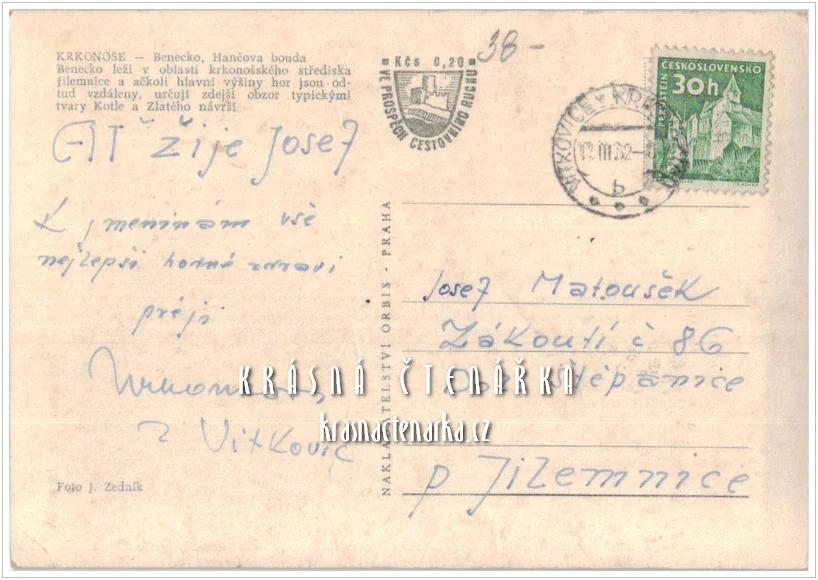 KRKONOŠE — Benecko, Hančova bouda
Benecko leží v oblasti krkonošského střediska
Jilemnice a ačkoli hlavní výšiny hor jsou od-
tud vzdáleny, určují zdejší obzor typickými
tvary Kotle a Zlatého návrší
Kčs 0,20
VE PROSPĚCH CESTOVNÍHO RUCHU
38-
ČESKOSLOVENSKO
30h
PERNŠTEJN
VÍTKOVICE V KRK
III 62
b
AŤ žije Josef
K jmeninám vše
nejlepší hodně zdraví
přejí
z Vítkovic
Foto J. Zedník
NAKLADATELSTVÍ ORBIS - PRAHA
Josef Matoušek
Zákoutí č 86
Štěpanice
p Jilemnice
KRÁSNÁ ČTENÁŘKA
krasnactenarka.cz